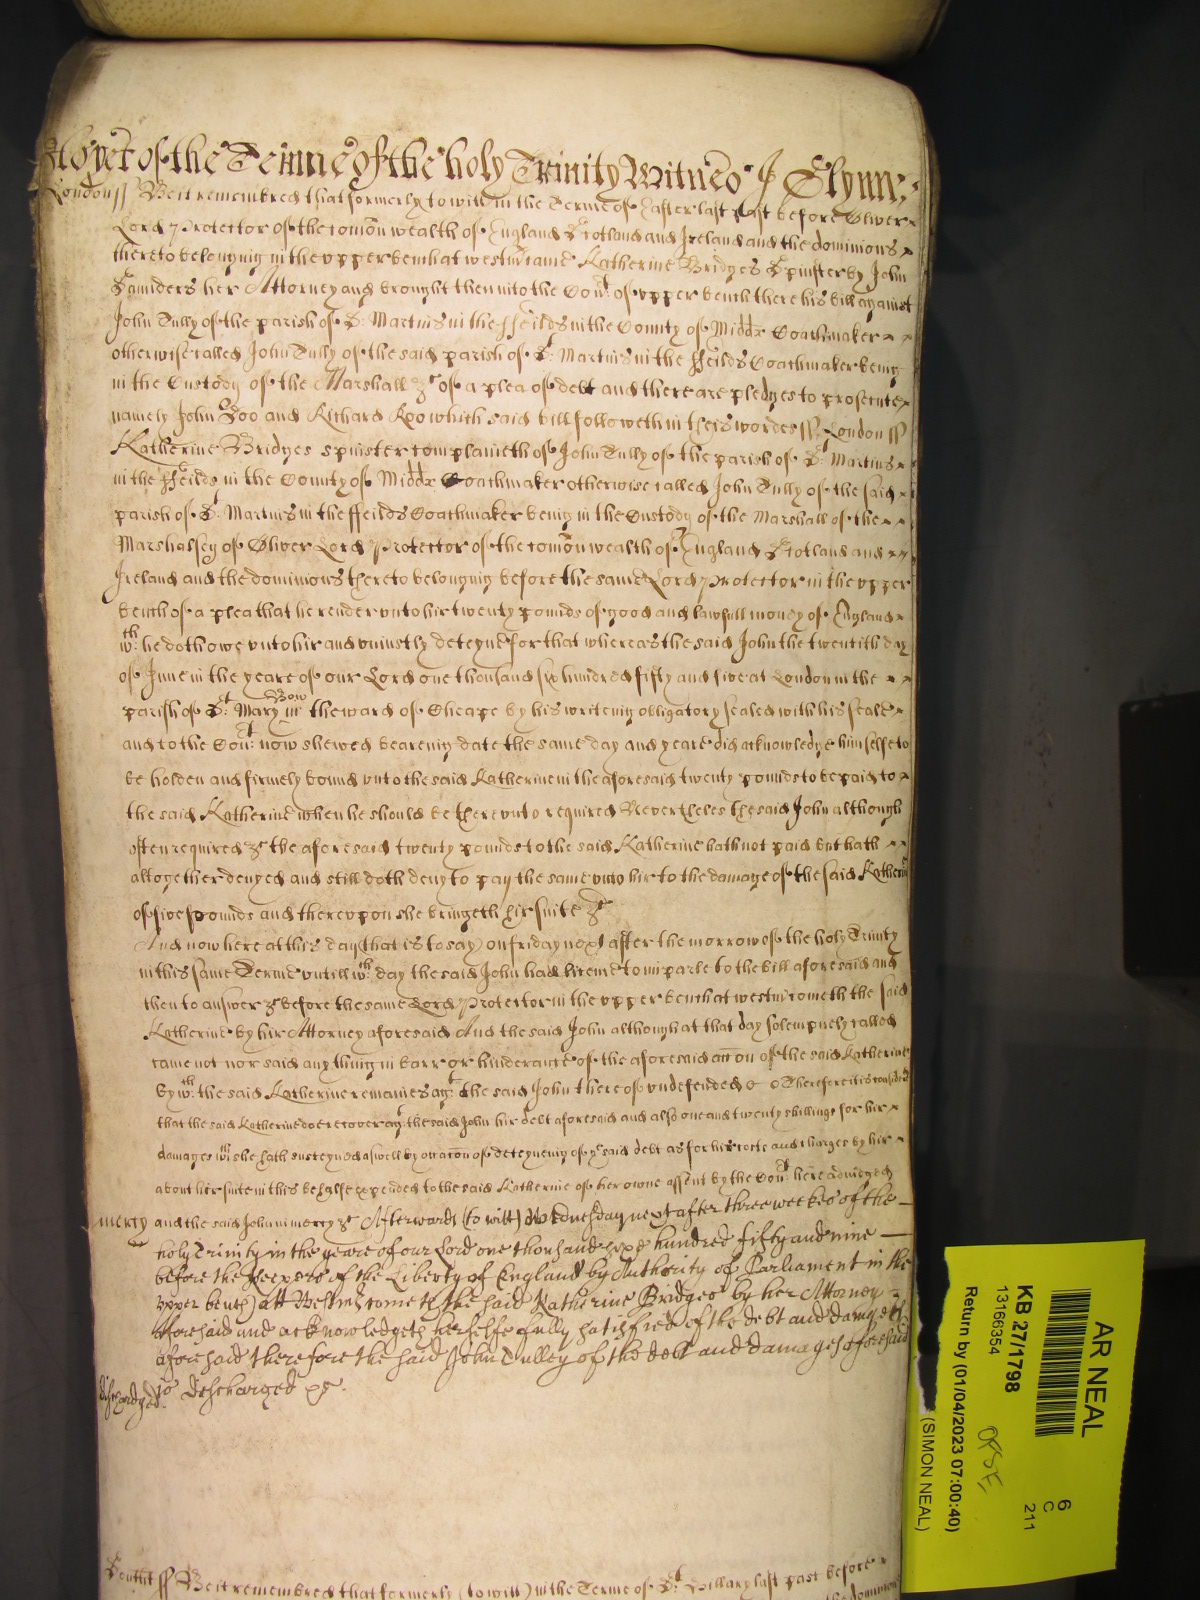 Yet of the Terme of the holy Trinity Witnes J Glynn
London ss Be it remembred that formerly to witt in the Terme of Easter last past before Oliver
Lord Protector of the comon wealth of England Scotland and Ireland and the dominions
thereto belonging in the upper bench at westm came Katherine Bridges Spinster by John
Saunders her Attorney and brought then into the Cort of upper bench there his bill against
John Tully of the parish of St Martins in the ffeilds in the County of Middx Coachmaker
otherwise called John Tully of the said parish of St Martins in the ffeilds Coachmaker being
in the Custody of the Marshall &c of a plea of debt and there are pledges to prosecute
namely John Doo and Richard Roo which said bill followeth in theis wordes ss London ss
Katherine Bridges spinster complaineth of John Tully of the parish of St Martins
in the ffeilds in the County of Middx Coachmaker otherwise called John Tully of the said
parish of St Martins in the ffeilds Coachmaker being in the Custody of the Marshall of the
Marshalsey of Oliver Lord Protector of the comon wealth of England Scotland and
Ireland and the dominions thereto belonging before the same Lord Protector in the upper
bench of a plea that he render unto hir twenty pounds of good and lawfull money of England
wch he doth owe unto hir and uniustly deteyne for that whereas the said John the twentith day
of June in the yeare of our Lord one thousand six hundred fifty and five at London in the
parish of St Mary Bow in the ward of Cheape by his writeing obligatory sealed with his seale
and to the Cort now shewed beareing date the same day and yeare did acknowledge himselfe to
be holden and firmely bound unto the said Katherine in the aforesaid twenty pounds to be paid to
the said Katherine when he should be there unto required Neverthelesse the said John although
often required &c the aforesaid twenty pounds to the said Katherine hath not paid but hath
altogether denyed and still doth deny to pay the same unto hir to the damage of the said Katherine
of five pounds and thereupon she bringeth hir suite &c
And now here at this day (that is to say) on friday next after the morrow of the holy Trinity
in this same Terme untill wch day the said John had licence to imparle to the bill aforesaid and
then to answer &c before the same Lord Protector in the upper bench at westm cometh the said
Katherine by hir Attorney aforesaid And the said John although at that day solempnely called
came not nor said any thing in barr or hinderance of the aforesaid accon of the said Katherine
by wch the said Katherine remaines agt the said John thereof undefended &c Therefore it is considered
that the said Katherine doe recover agt the said John hir debt aforesaid and also one and twenty shillings for hir
damages wch she hath susteyned aswell by occacon of deteyneing of ye said debt as for hir costs and charges by hir
about her suite in this behalfe expended to the said Katherine of her owne assent by the Cort here adiudged
mercy and the said John in mercy &c Afterwards (to witt) on Wednesday next after three weekes of the
holy Trinity in the yeare of our Lord one thousand sixe hundred fifty and nine
before the Keepers of the Liberty of England by Authority of Parliament in the
upper bench att Westm cometh the said Katherine Bridges by her Attorney
aforesaid and acknowledgeth herselfe fully satisfied of the debt and damages
aforesaid therefore the said John Tulley of the debt and damages aforesaid
discharged is discharged &c
ss Be it remembred that formerly (to witt) in the Terme of St Hillary last past before
the dominions
AR NEAL
KB 27/1798
13166354
Return by (01/04/2023 07:00:40)
(SIMON NEAL)
6
C
211